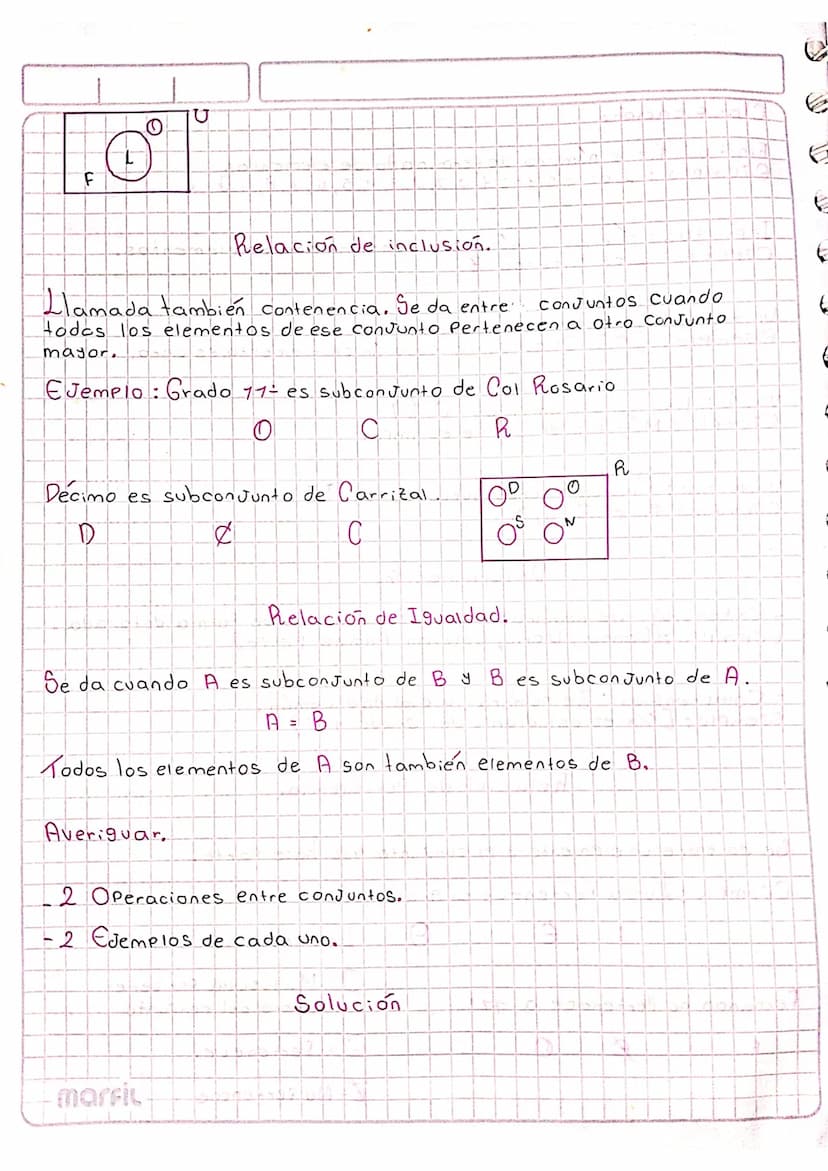 U
①
L
F
Relación de inclusión.
Llamada también contenencia. Se da entre conjuntos cuando
todos los elementos de ese conjunto pertenecen a otro conjunto
mayor.
Ejemplo: Grado 11° es subconjunto de Col Rosario
O C R
R
Décimo es subconjunto de Carrizal.
D O
S N
D ⊄ C
Relación de Igualdad.
Se da cuando A es subconjunto de B y B es subconjunto de A.
A = B
Todos los elementos de A son también elementos de B.
Averiguar.
- 2 Operaciones entre conjuntos.
- 2 Ejemplos de cada uno.
Solución
marfil